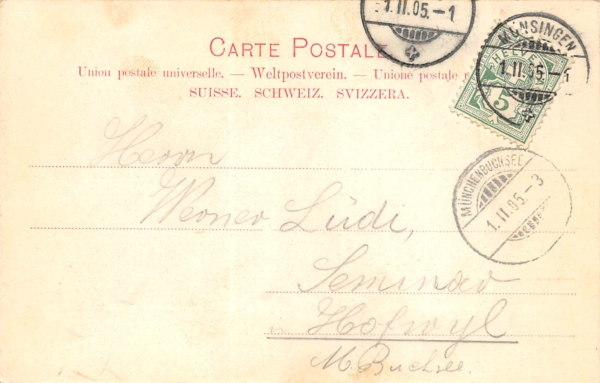 1.II.05.-1
MÜNSINGEN
1.II.05.-1
HELVETIA
5
CARTE POSTALE
Union postale universelle. — Weltpostverein. — Unione postale
SUISSE. SCHWEIZ. SVIZZERA.
MÜNCHENBUCHSEE
1.II.05.-3
Herrn
Werner Lüdi,
Seminar
Hofwyl
M. Buchsee.